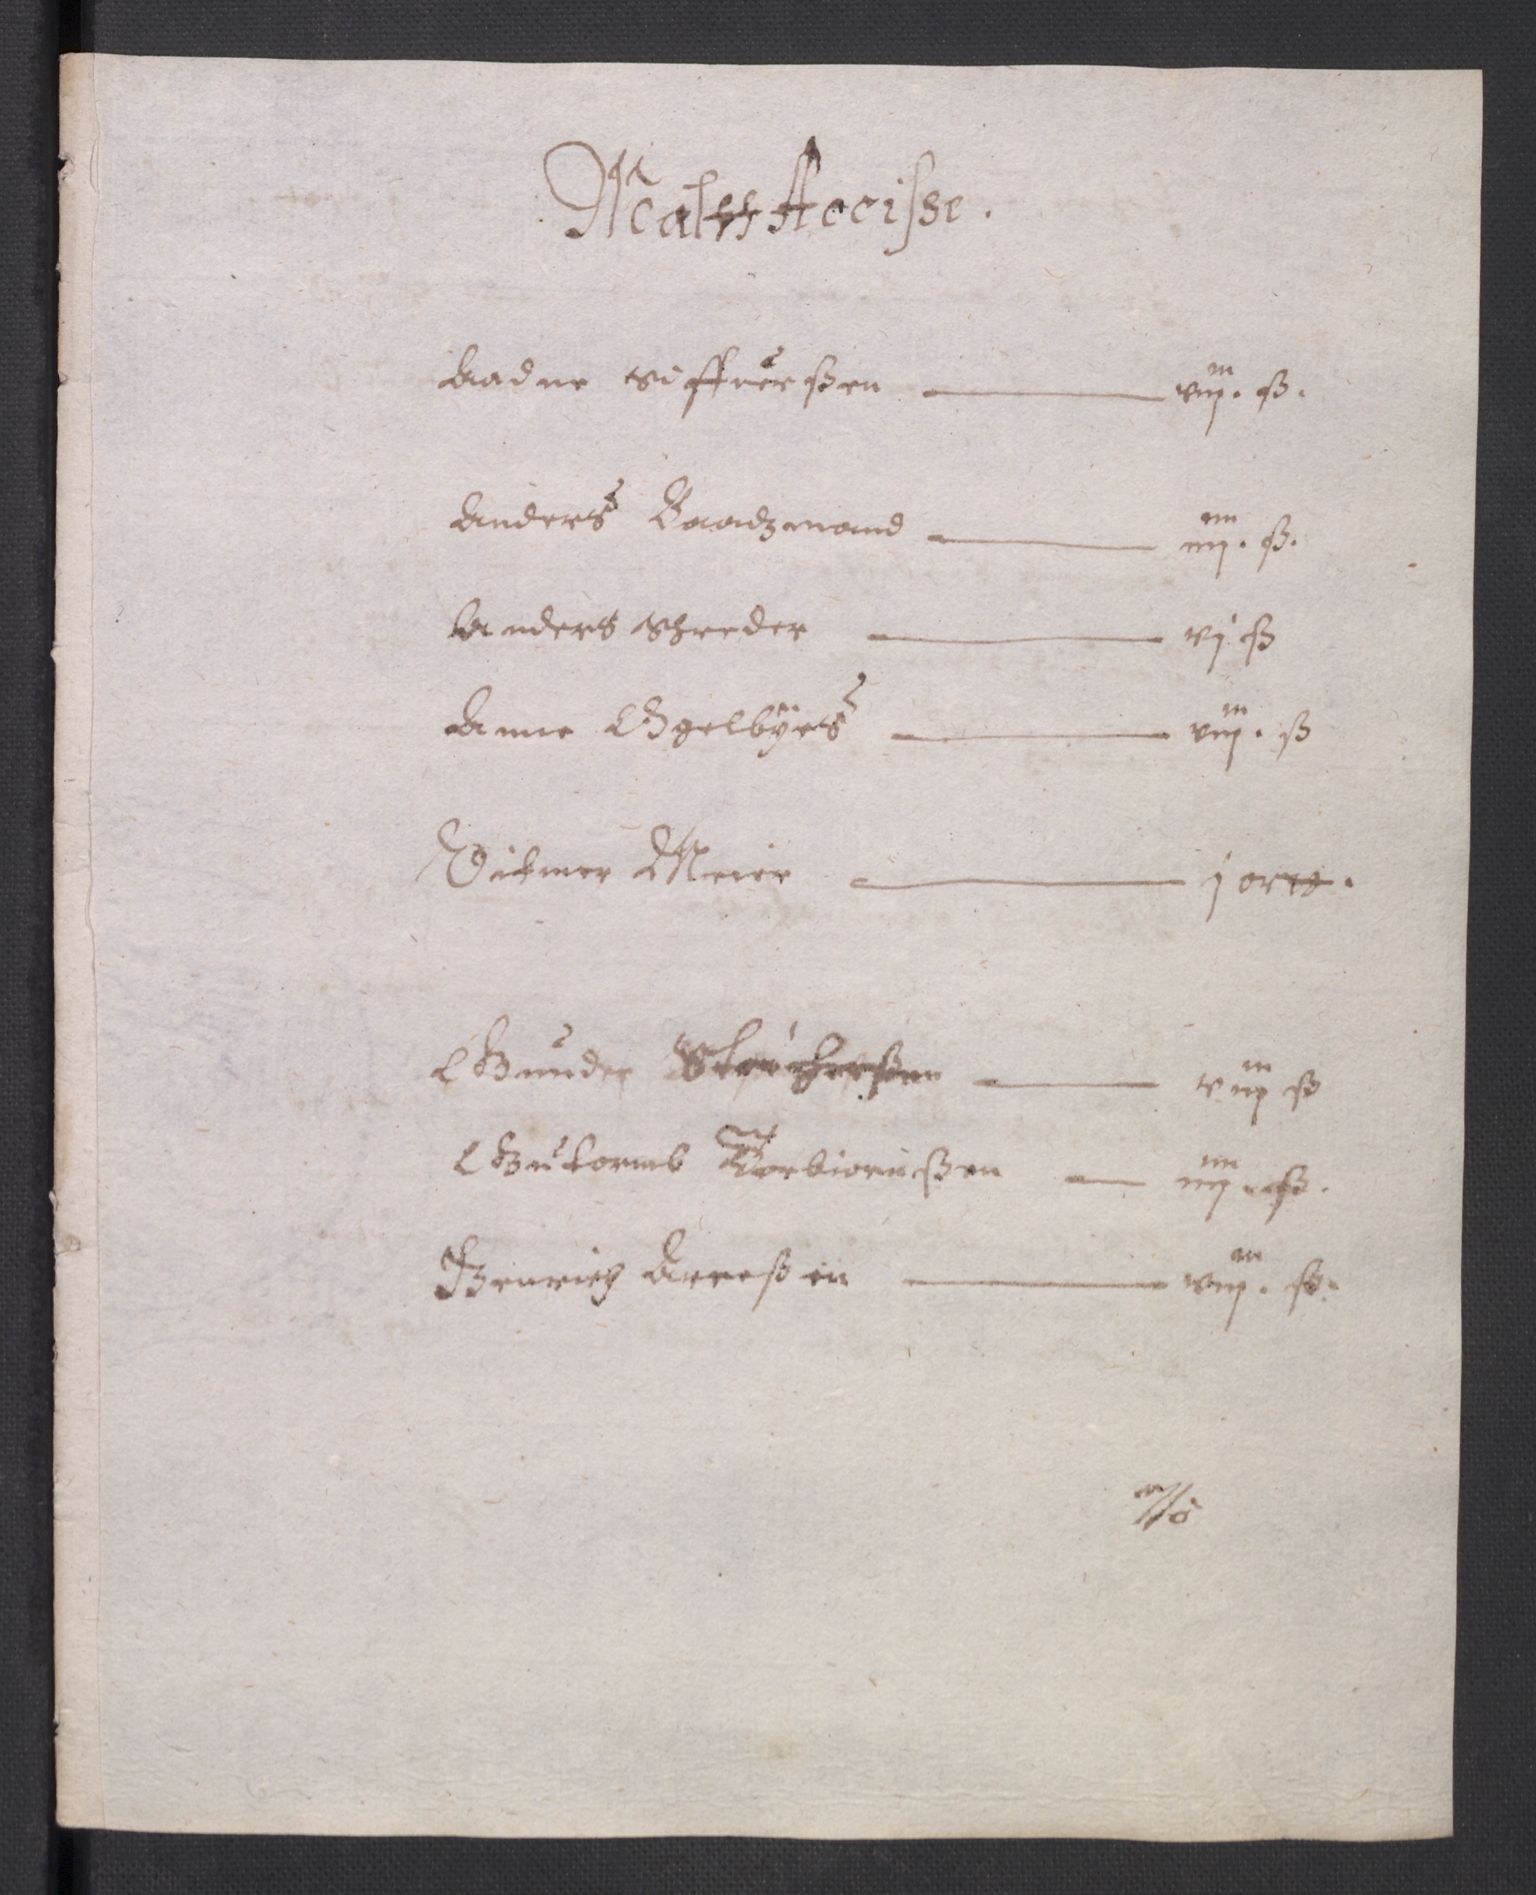 Maltt Accisse.
Aadne Siffuerßen ——— viij. ß.
Anders Baadzmand ——— iiij. ß.
Anders Schreder ——— vj ß
Anne Egelbÿes ——— viij. ß
Ditmer Meier ——— j ortt.
Gunder ——— viij ß
Gutormb Torbiornßen — iiij. ß.
Henrich Arreßen ——— viij. ß.